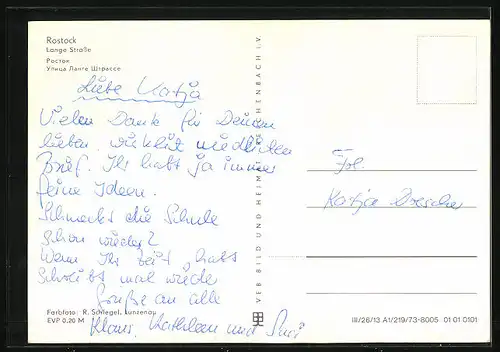 Rostock
Lange Straße
Росток
Улица Ланге Штрассе
Liebe Katja
Vielen Dank für Deinen
lieben, wirklich niedlichen
Brief. Ihr habt ja immer
feine Ideen.
Schmeckt die Schule
schon wieder?
Wenn Ihr Zeit habt
Schreibt mal wieder
Grüße an alle
Klaus, Kathleen und
Farbfoto: R. Schlegel, Lunzenau
EVP 0.20 M
VEB BILD UND HEIMAT REICHENBACH I. V.
Frl.
Katja
III/26/13 A1/219/73-8005 01 01 0101